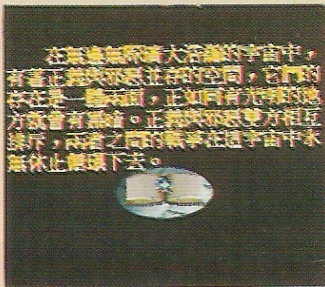 在無邊無際廣大浩瀚的宇宙中，
有著正義與邪惡並存的空間，它們的
存在是一體兩面，正如同有光明的地
方就會有黑暗。正義與邪惡雙方相互
排斥，兩者之間的戰爭在這宇宙中永
無休止循環下去。